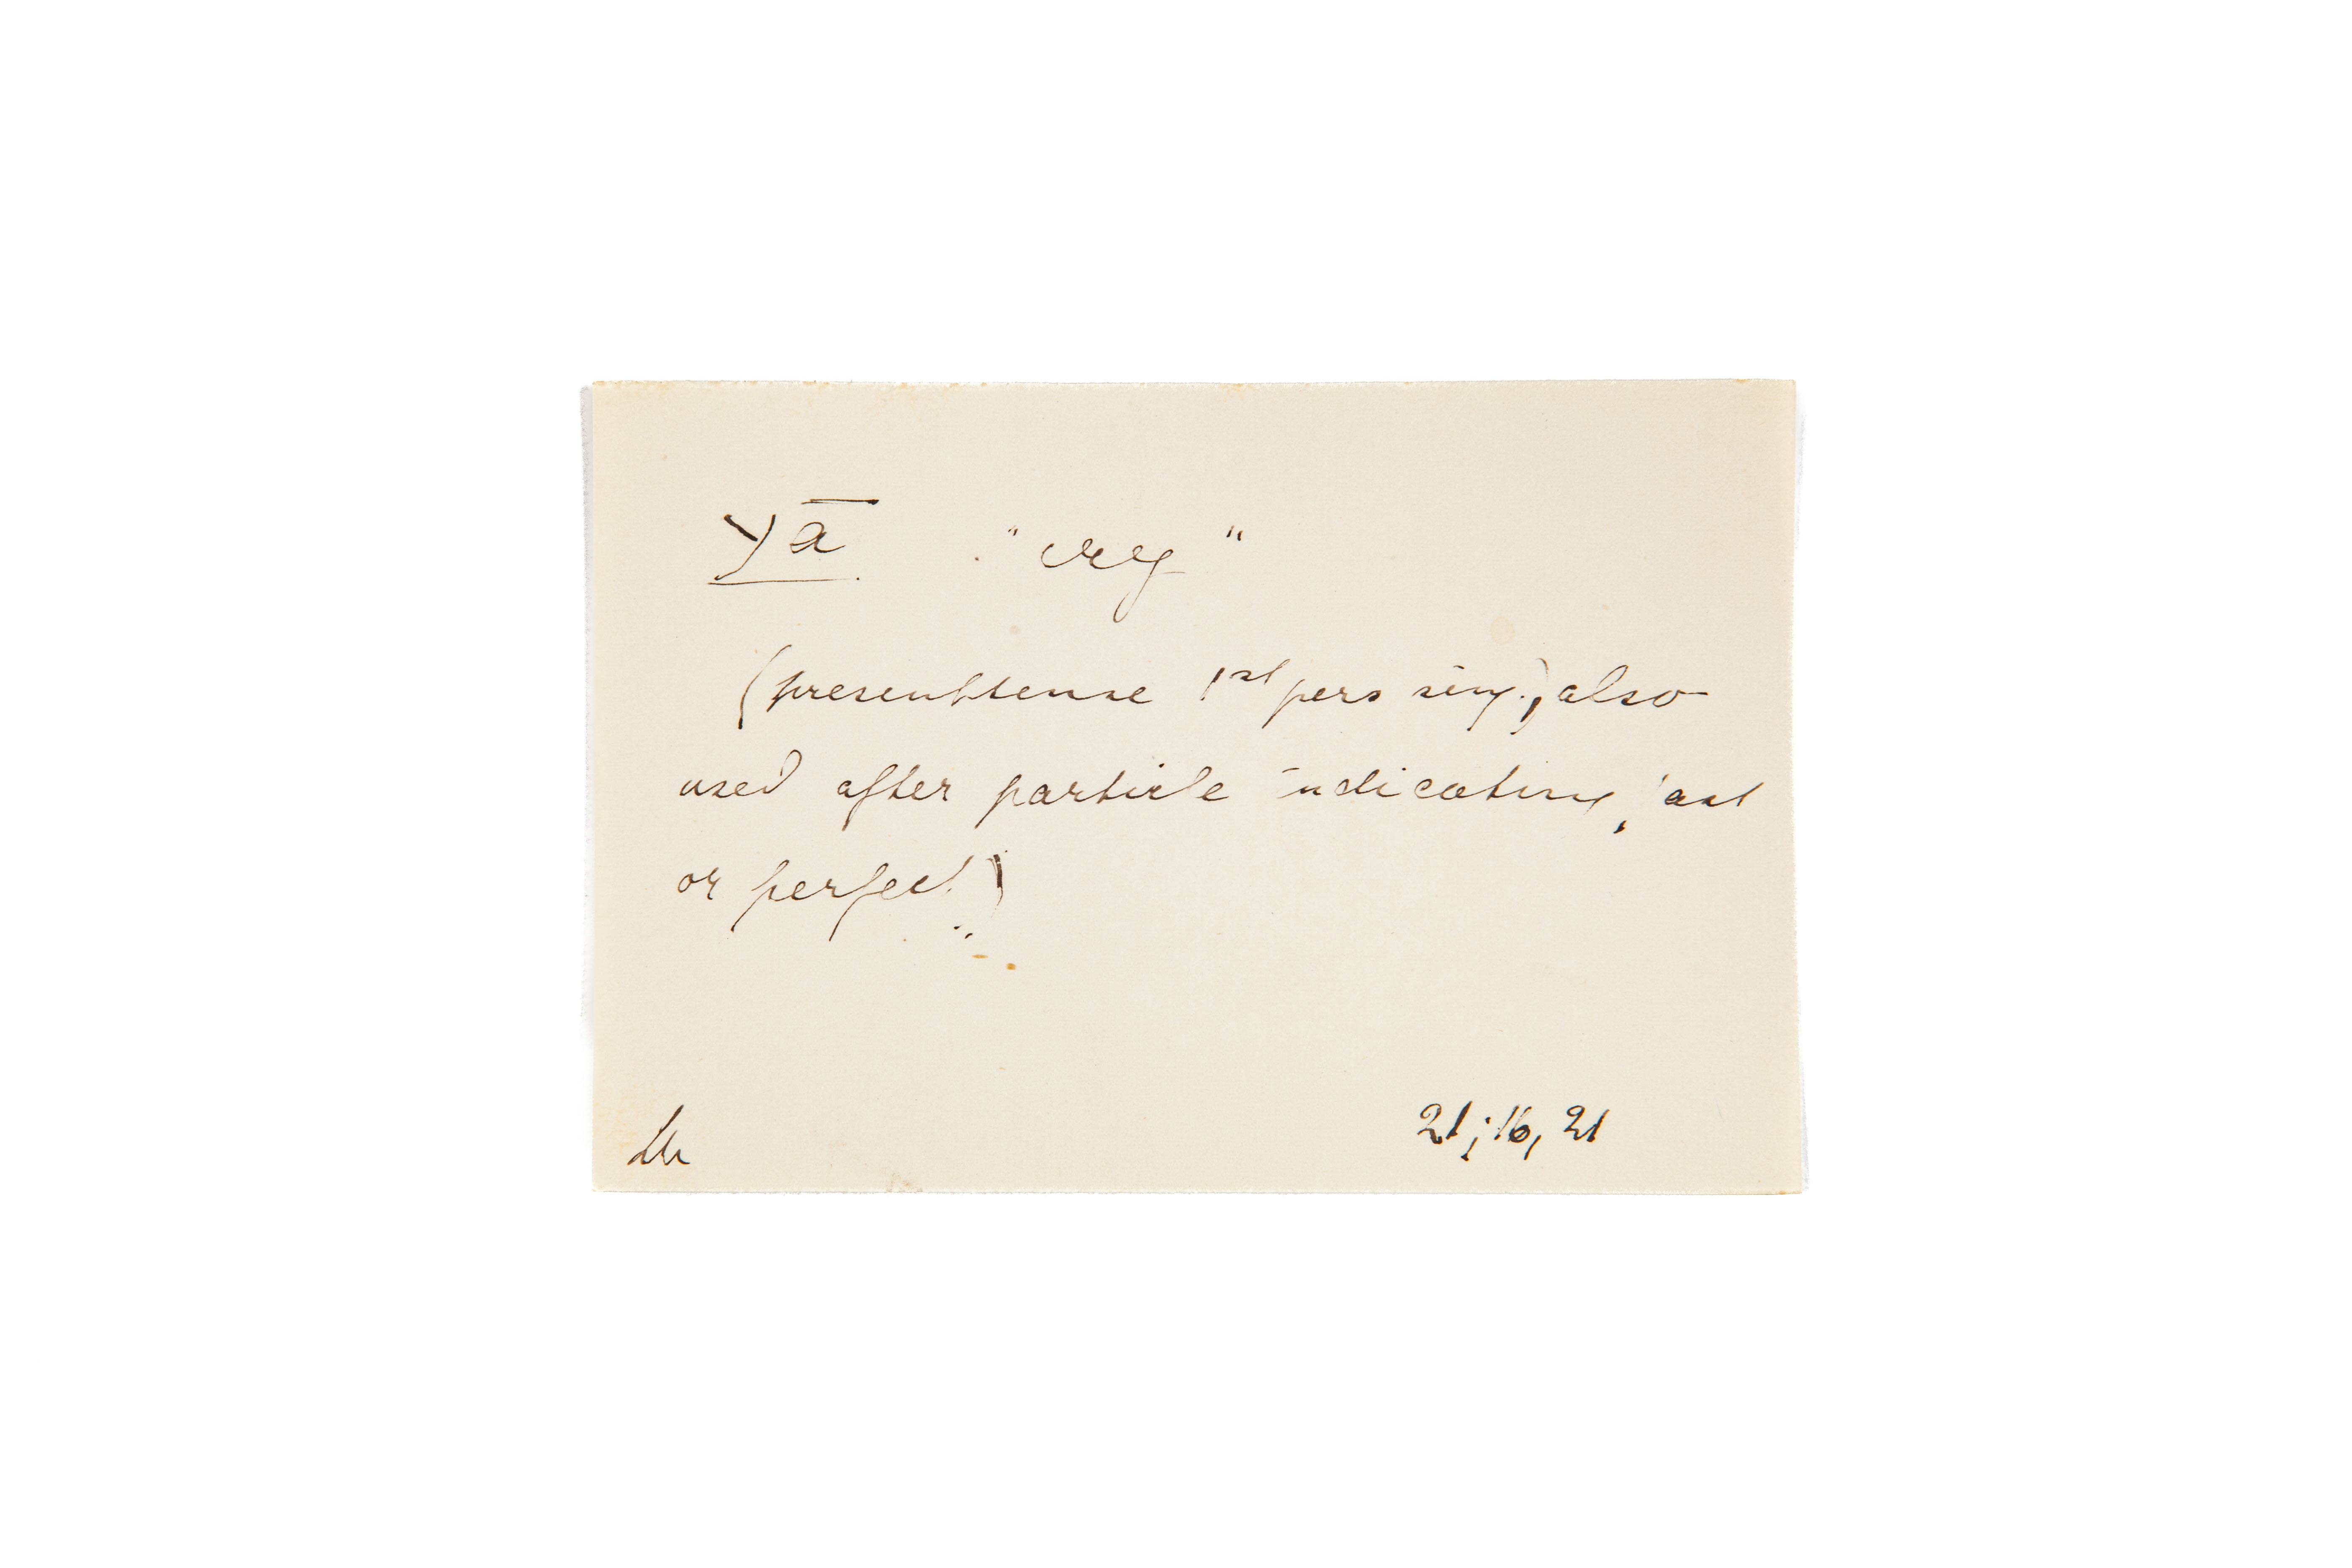 Yā "cry"
(present tense 1st pers sing.) also
used after particle indicating past
or perfect)
21; 16, 21